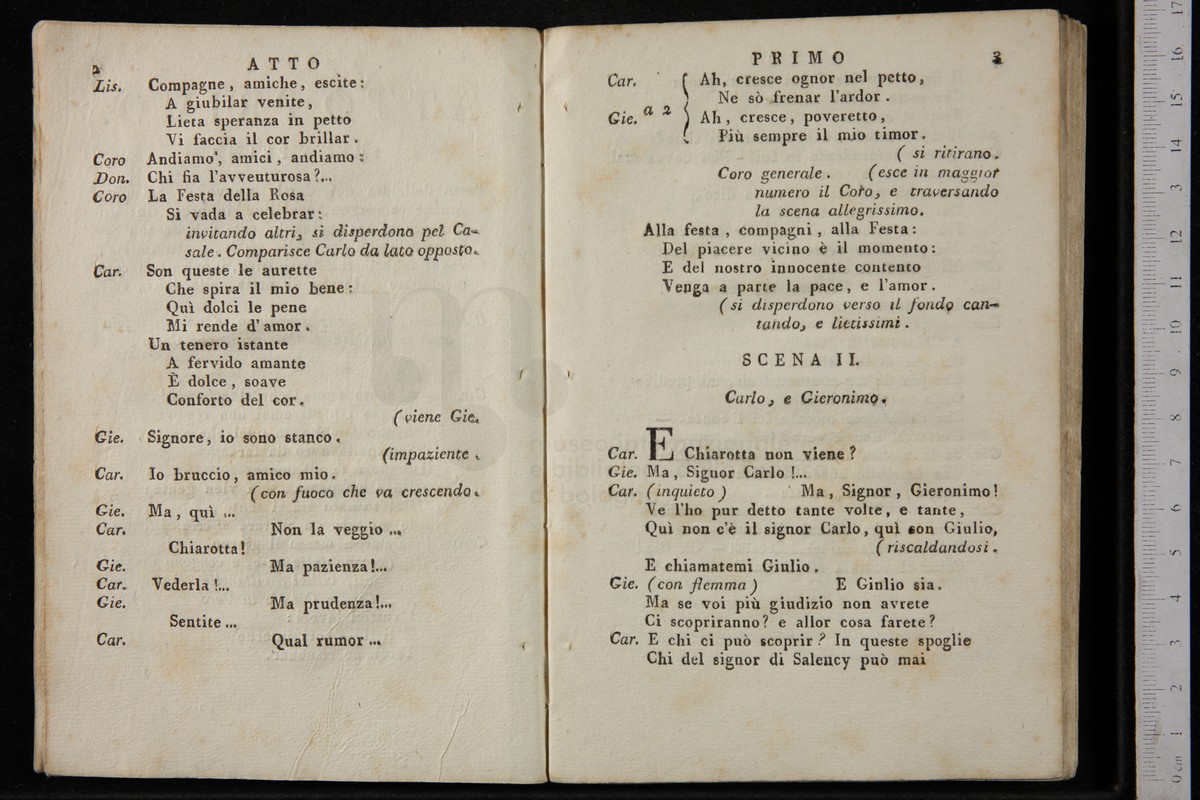 2 ATTO
Lis. Compagne, amiche, escite:
A giubilar venite,
Lieta speranza in petto
Vi faccia il cor brillar.
Coro Andiamo, amici, andiamo:
Don. Chi fia l'avventurosa?...
Coro La Festa della Rosa
Si vada a celebrar:
invitando altri, si disperdono pel Ca-
sale. Comparisce Carlo da lato opposto.
Car. Son queste le aurette
Che spira il mio bene:
Quì dolci le pene
Mi rende d'amor.
Un tenero istante
A fervido amante
È dolce, soave
Conforto del cor.
(viene Gie.
Gie. Signore, io sono stanco.
(impaziente.
Car. Io bruccio, amico mio.
(con fuoco che va crescendo.
Gie. Ma, quì ...
Car. Non la veggio ...
Chiarotta!
Gie. Ma pazienza!...
Car. Vederla!...
Gie. Ma prudenza!...
Sentite ...
Car. Qual rumor ...
PRIMO 3
Car. Ah, cresce ognor nel petto,
Ne sò frenar l'ardor.
a 2
Gie. Ah, cresce, poveretto,
Più sempre il mio timor.
( si ritirano.
Coro generale. (esce in maggior
numero il Coro, e traversando
la scena allegrissimo.
Alla festa, compagni, alla Festa:
Del piacere vicino è il momento:
E del nostro innocente contento
Venga a parte la pace, e l'amor.
(si disperdono verso il fondo can-
tando, e lietissimi.
SCENA II.
Carlo, e Gieronimo.
Car. E Chiarotta non viene?
Gie. Ma, Signor Carlo!...
Car. (inquieto) Ma, Signor, Gieronimo!
Ve l'ho pur detto tante volte, e tante,
Quì non c'è il signor Carlo, quì son Giulio,
(riscaldandosi.
E chiamatemi Giulio.
Gie. (con flemma) E Ginlio sia.
Ma se voi più giudizio non avrete
Ci scopriranno? e allor cosa farete?
Car. E chi ci può scoprir? In queste spoglie
Chi del signor di Salency può mai
museo internazionale
e biblioteca
di bologna
0 cm 1 2 3 4 5 6 7 8 9 10 11 12 13 14 15 16 17